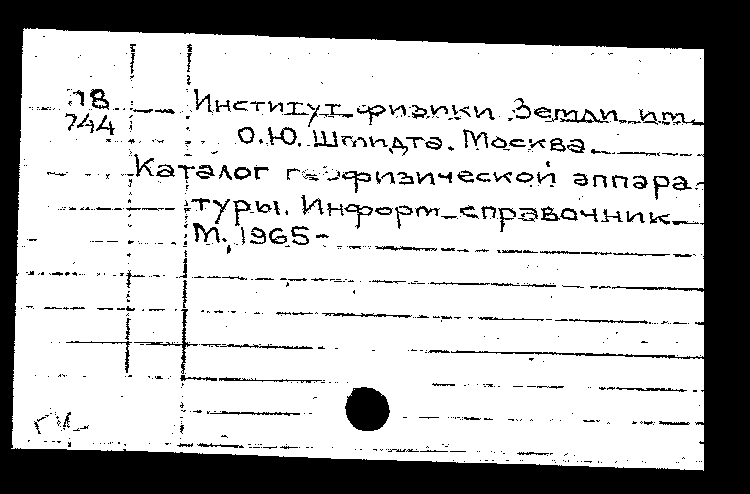 П8
744
Институт физики Земли им.
О.Ю. Шмидта. Москва.
Каталог геофизической аппара-
туры. Информ. справочник.
М., 1965-